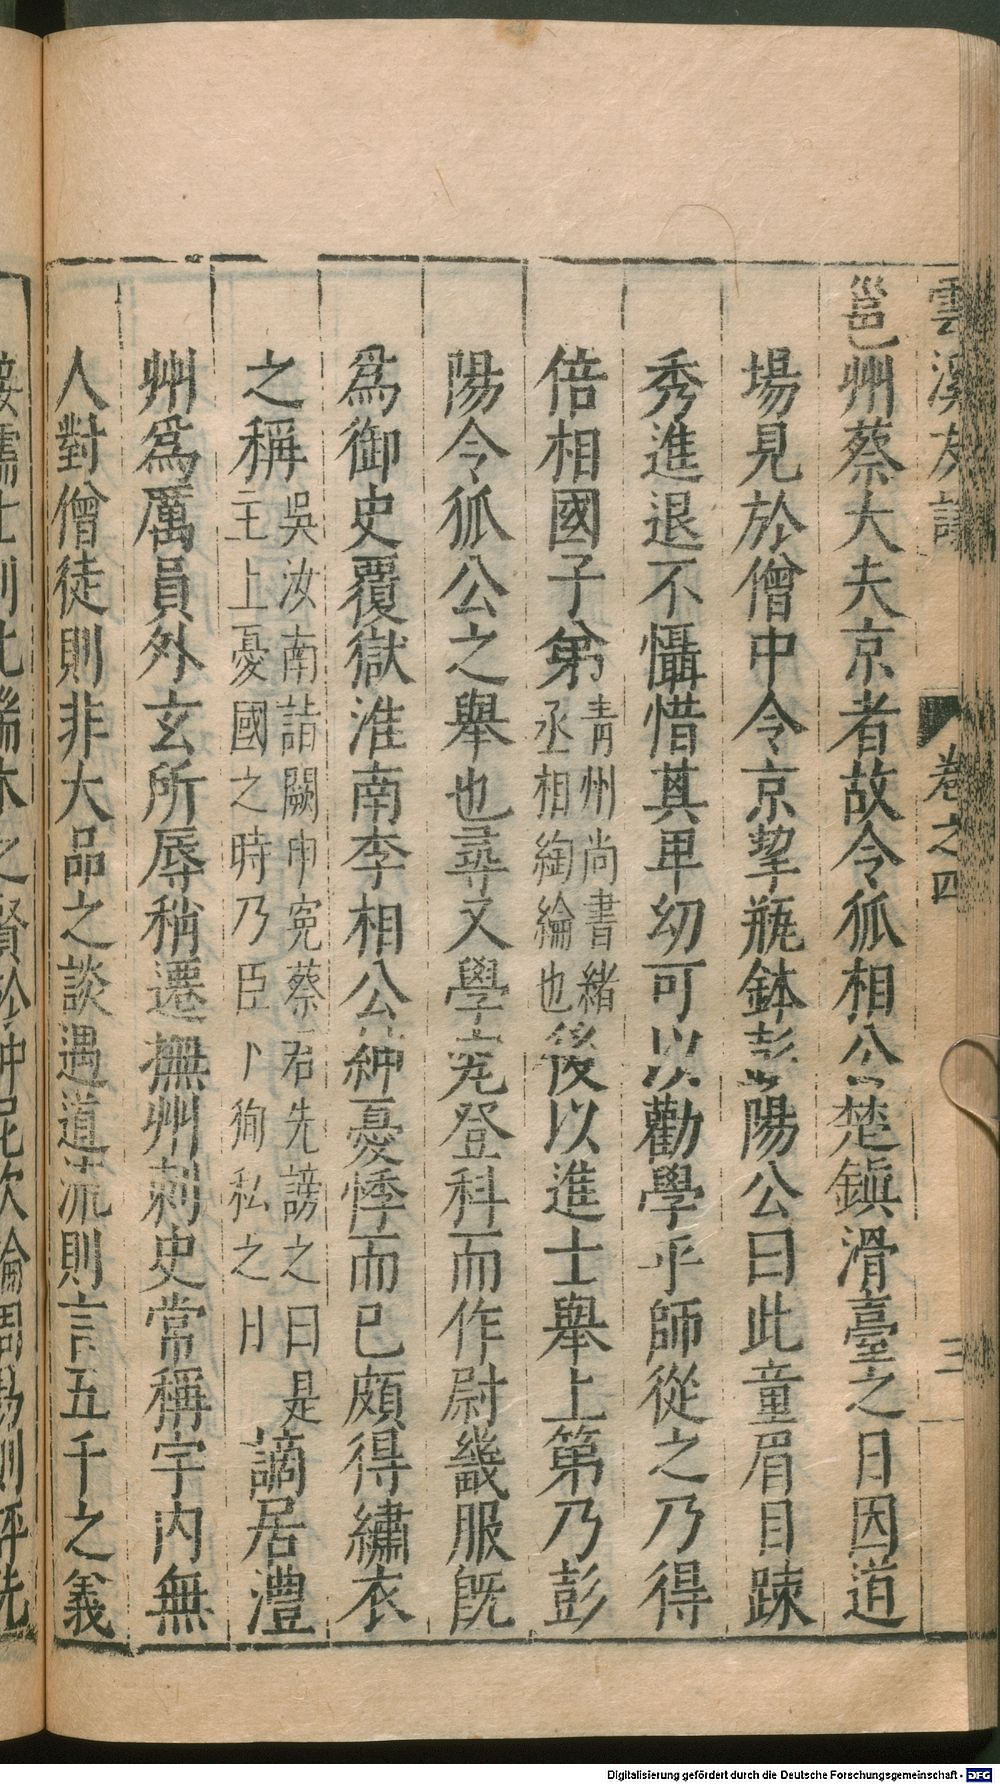 雲溪友議 卷之四 三
邕州蔡大夫京者故令狐相公楚鎮滑臺之日因道
場見於僧中令京挈瓶鉢彭陽公曰此童眉目踈
秀進退不懾惜其卑幼可以勸學乎師從之乃得
倍相國子弟青州尚書緒丞相綯綸也後以進士舉上第乃彭
陽令狐公之舉也尋又學究登科而作尉畿服旣
爲御史覆獄淮南李相公紳憂悸而已頗得繡衣
之稱吳汝南詣闕申寃蔡君先謗之曰是主上憂國之時乃臣卜狥私之日謫居澧
州爲厲員外玄所辱稍遷撫州刺史常稱宇内無
人對僧徒則非大品之談遇道流則言五千之義
Digitalisierung gefördert durch die Deutsche Forschungsgemeinschaft - DFG